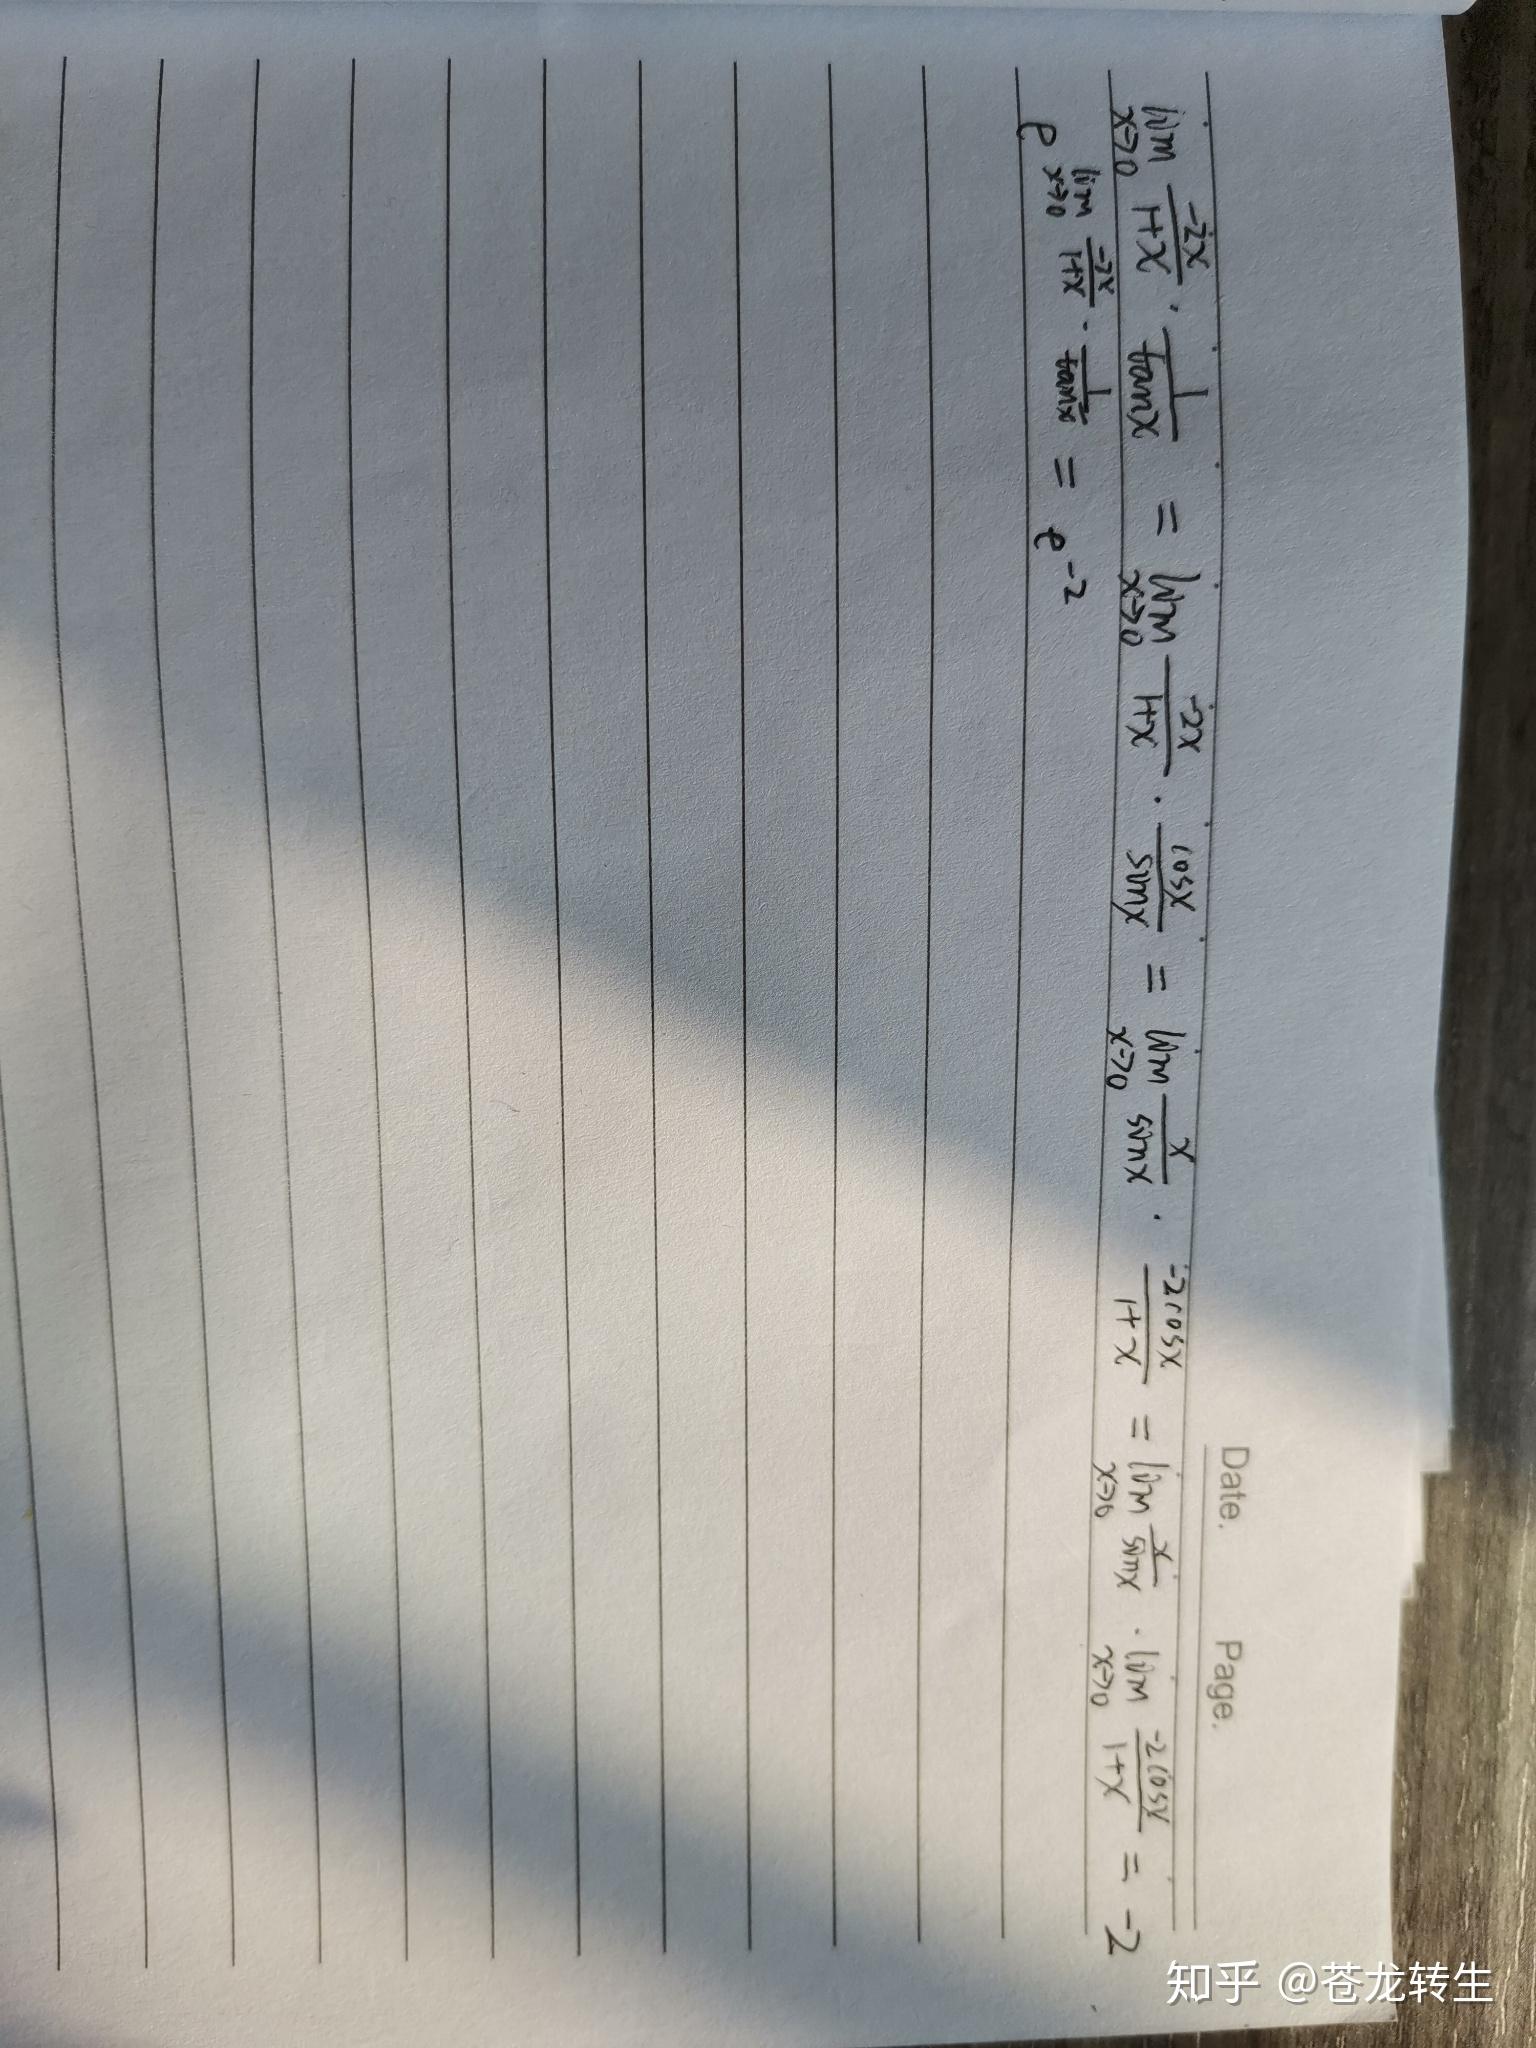 Date. Page.
lim_{x->0} \frac{-2x}{1+x} · \frac{1}{tanx} = lim_{x->0} \frac{-2x}{1+x} · \frac{cosx}{sinx} = lim_{x->0} \frac{x}{sinx} · \frac{-2cosx}{1+x} = lim_{x->0} \frac{x}{sinx} · lim_{x->0} \frac{-2cosx}{1+x} = -2
e^{lim_{x->0} \frac{-2x}{1+x} · \frac{1}{tanx}} = e^{-2}
知乎 @苍龙转生